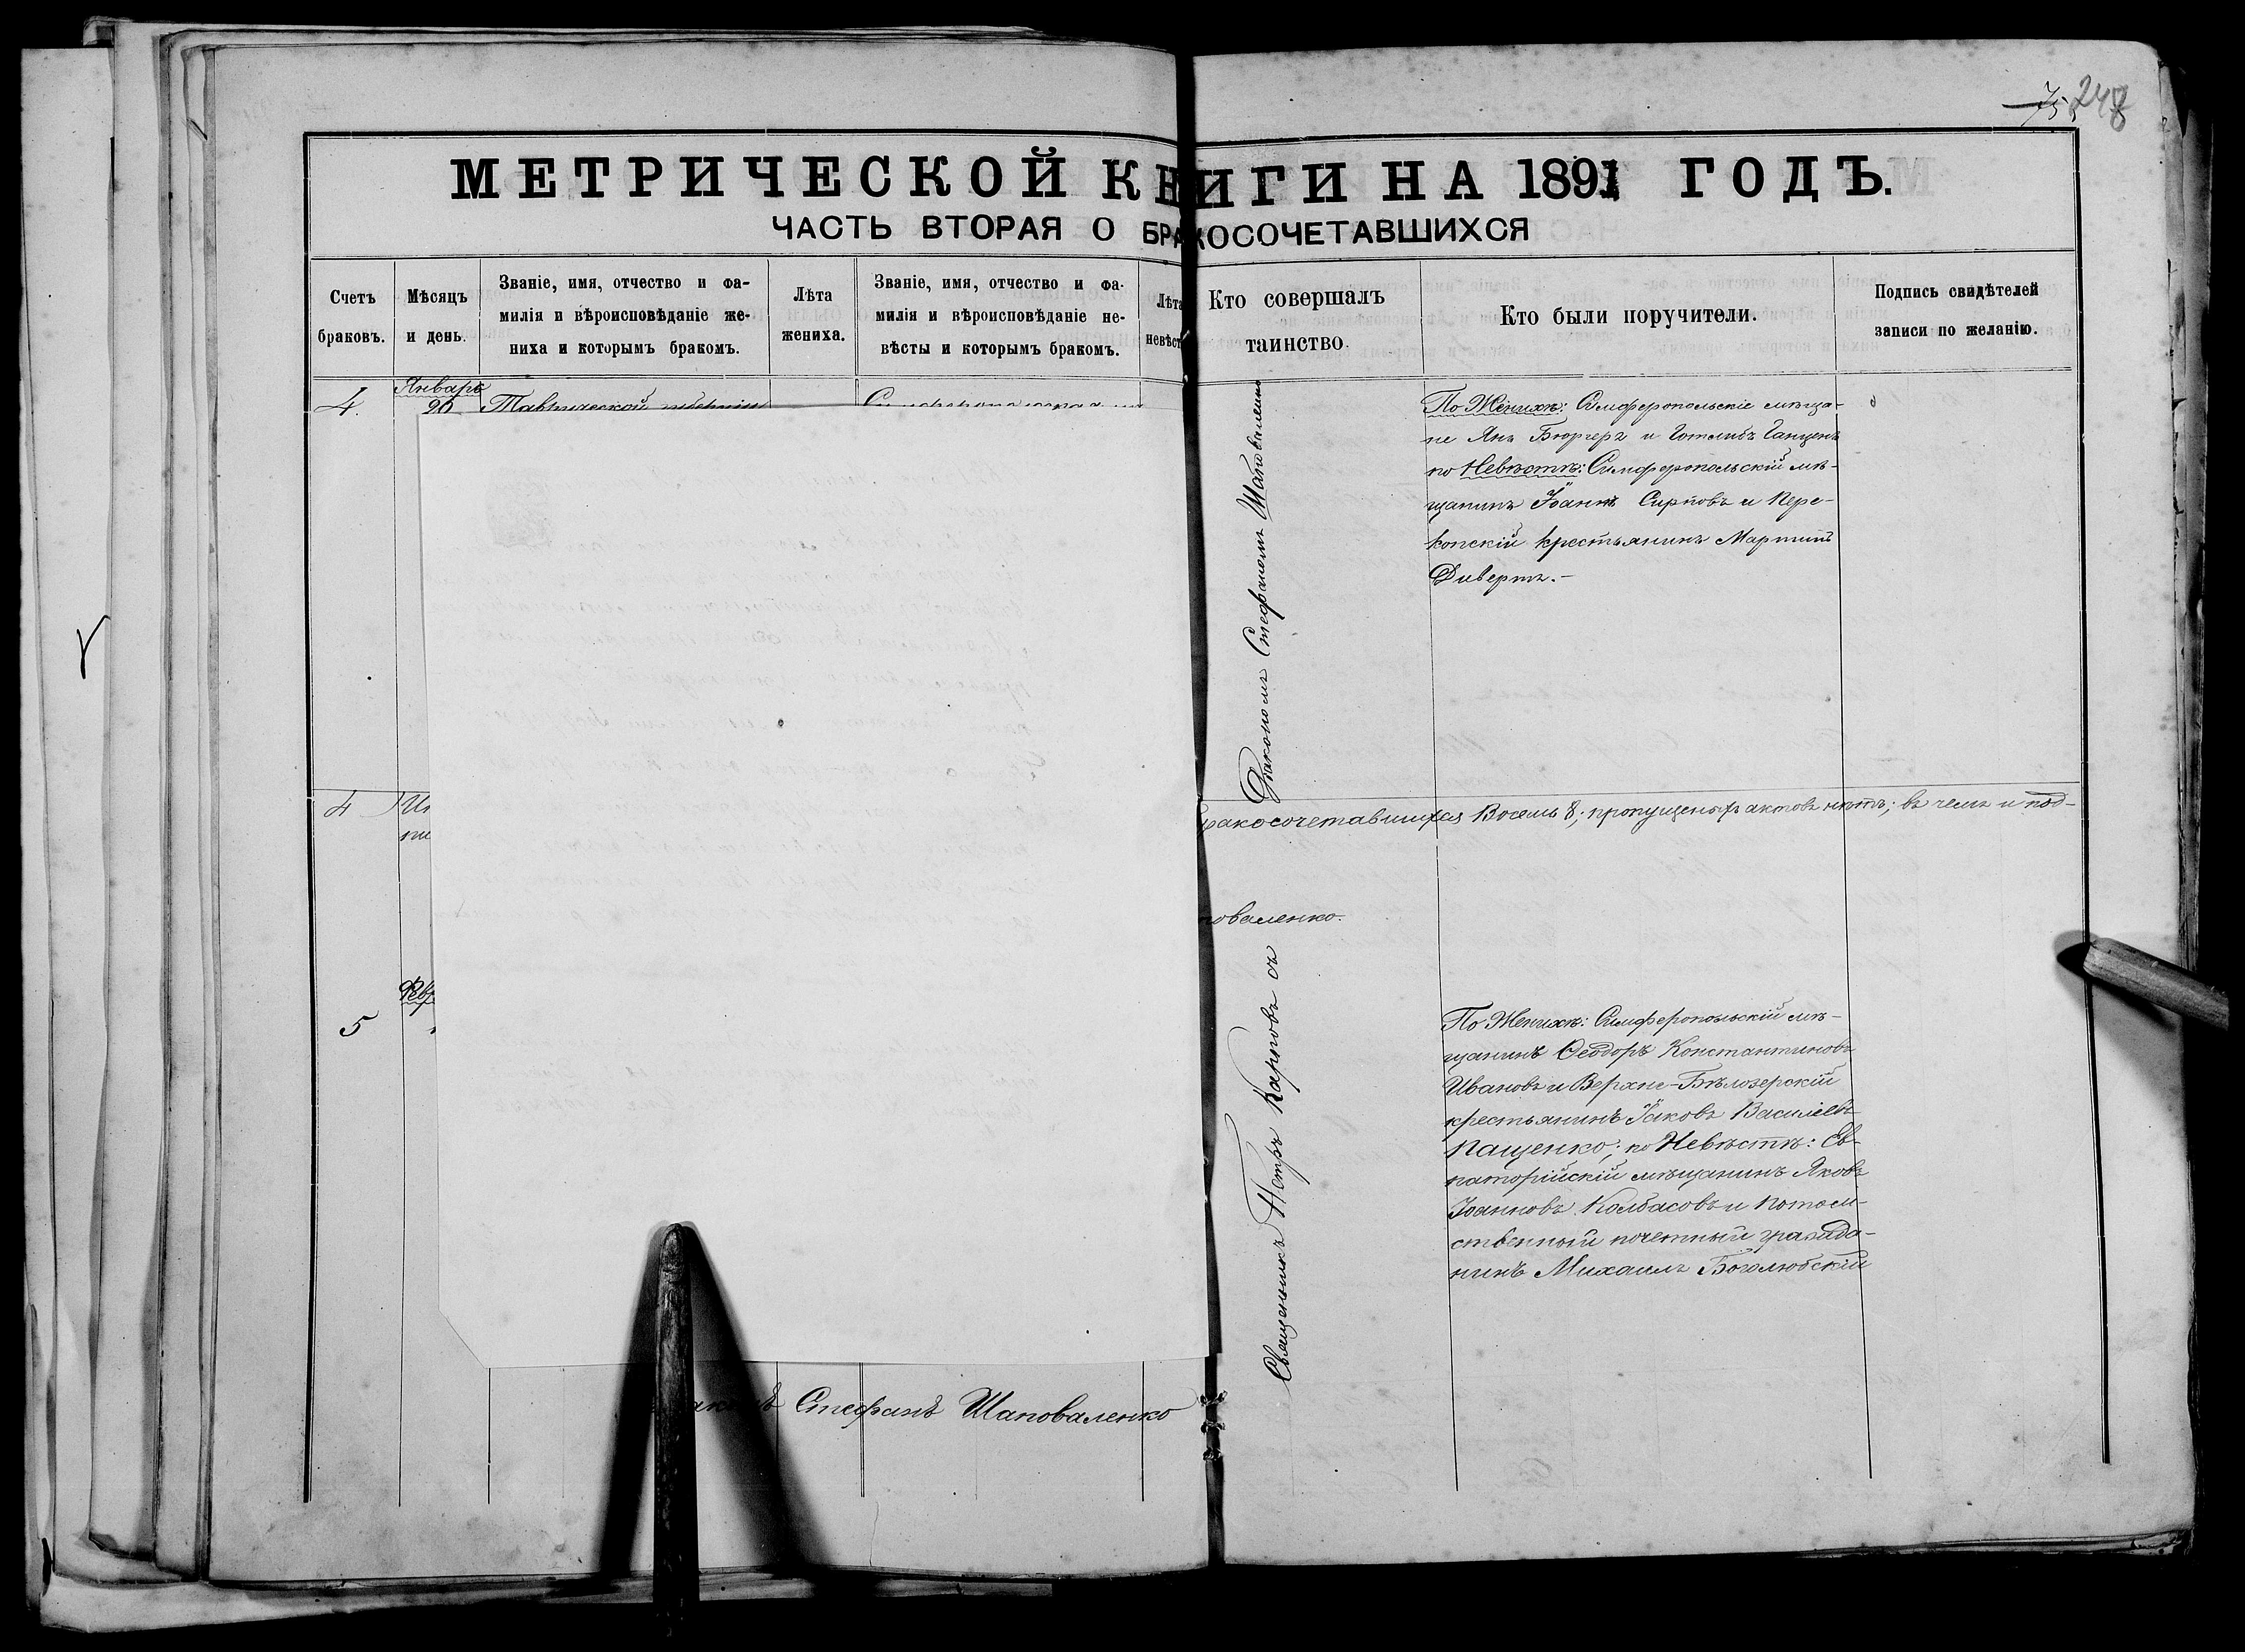 75 248
МЕТРИЧЕСКОЙ КНИГИ НА 1891 ГОДЪ.
ЧАСТЬ ВТОРАЯ О БРАКОСОЧЕТАВШИХСЯ
Счетъ браковъ.
Мѣсяцъ и день.
Званіе, имя, отчество и фа-
милія и вѣроисповѣданіе же-
ниха и которымъ бракомъ.
Лѣта
жениха.
Званіе, имя, отчество и фа-
милія и вѣроисповѣданіе не-
вѣсты и которымъ бракомъ.
Лѣта
невѣст
Кто совершалъ
таинство.
Кто были поручители.
Подпись свидѣтелей
записи по желанію.
4.
Январь
26
Таврической губерніи
Діакономъ Стефаномъ Шаповаленко
По Женихѣ: Симферопольскіе мѣща-
не Янъ Бюргеръ и Готлибъ Ганценъ
по Невѣстѣ: Симферопольскій мѣ-
щанинъ Іоаннъ Сирповъ и Пере-
копскій крестьянинъ Мартинъ
Дивертъ.-
4
бракосочетавшихся Восемь 8; пропущеныхъ актовъ нѣтъ; въ чемъ и под-
поваленко.
Февр
5
Священникъ Петръ Карповъ съ
По Женихѣ: Симферопольскій мѣ-
щанинъ Ѳеодоръ Константиновъ
Ивановъ и Верхне-Бѣлозерскій
крестьянинъ Іаковъ Василіевъ
Пащенко; по Невѣстѣ: Ев-
паторійскій мѣщанинъ Яковъ
Іоанновъ Колбасовъ и Потом-
ственный почетный гражда-
нинъ Михаилъ Боголюбскій
Стефанъ Шаповаленко